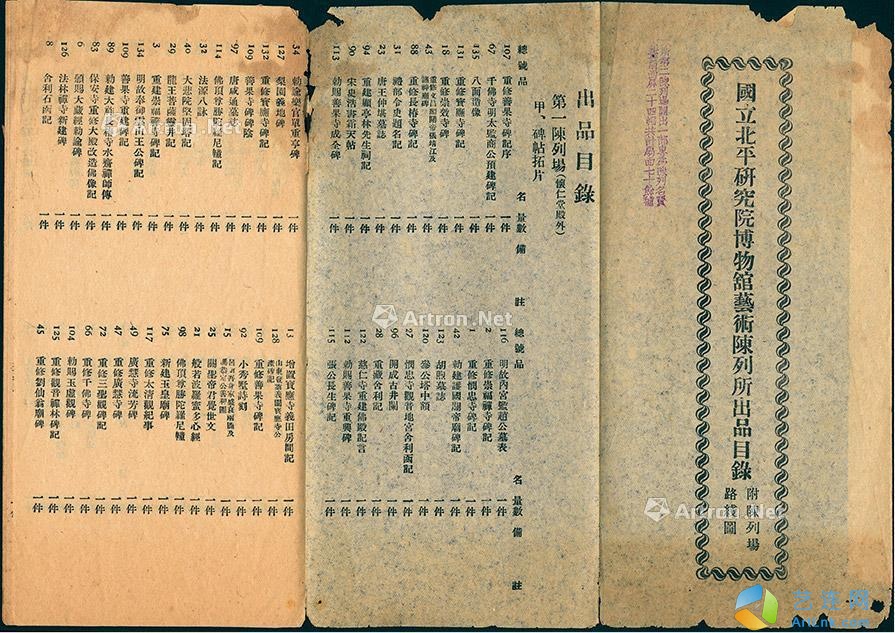 國立北平研究院博物館藝術陳列所出品目錄
附陳列場
路綫圖
出品目錄
第一陳列場(懷仁堂殿外)
甲、碑帖拓片
總號 品 名 量數 備 註
107 重修善果寺碑記序 一件
67 千佛寺明太監商公預建碑記 一件
135 八面造像 一件
131 重修寶應寺碑記 一件
18 重修崇效寺碑 一件
43 一件
88 重修長椿寺碑記 一件
31 禮部令史題名記 一件
23 唐王仲堪墓誌 一件
94 重建顧亭林先生祠記 一件
90 宋史浩書霜天帖 一件
113 勅賜善果寺成全碑 一件
總號 品 名 量數 備 註
116 明故內宮監趙公墓表 一件
2 重修崇福禪寺碑記 一件
1 重修憫忠寺碑記 一件
42 勅建護國關帝廟碑記 一件
123 胡煦墓誌 一件
120 滲公塔中額 一件
27 憫忠寺觀音地宮舍利函記 一件
96 開成古井闌 一件
28 重藏舍利記 一件
122 慈仁寺重建佛殿記言 一件
112 勅賜善果寺重興碑 一件
115 張公長生碑記 一件
34 勅諭樂官單重亭碑 一件
127 梨園義地碑 一件
132 重修寶應寺碑記 一件
109 善果寺碑碑陰 一件
97 唐咸通墓誌 一件
114 佛頂尊勝陀羅尼幢 一件
32 法源八詠 一件
40 大悲院堅固塔記 一件
29 龍王菩薩靈井記 一件
3 重建崇福禪寺碑記 一件
134 明故奉御雲山王公碑記 一件
109 善果寺重修碑記 一件
89 勅建大報國慈仁寺水齋禪師傳 一件
83 保安寺重建大殿改造佛像記 一件
6 頒賜大藏經勅諭碑 一件
126 法林禪寺新建碑 一件
8 舍利石函記 一件
13 增置寶應寺義田房間記 一件
128 一件
109 重修善果寺碑記 一件
92 小秀墅詩刻 一件
15 一件
25 關聖帝君覺世文 一件
21 般若波羅蜜多心經 一件
98 佛頂尊勝陀羅尼幢 一件
75 新建玉皇廟碑 一件
117 重修太清觀紀事 一件
49 廣慧寺流芳碑 一件
47 重修廣慧寺碑 一件
72 重修三聖觀碑記 一件
66 重修千佛寺碑 一件
104 勅賜玉虛觀碑 一件
125 重修觀音禪林碑記 一件
45 重修劉仙翁廟碑 一件
Artron.Net
Artron.Net
Artron.Net
Artron.Net